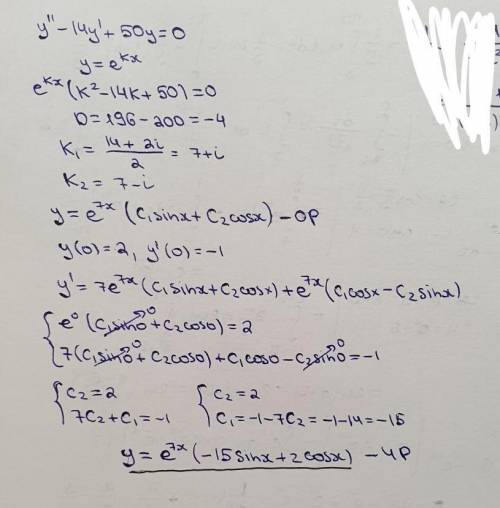 y'' - 14y' + 50y = 0
y = e^{kx}
e^{kx}(k² - 14k + 50) = 0
D = 196 - 200 = -4
K₁ = (14 + 2i)/2 = 7+i
K₂ = 7-i
y = e^{7x} (C₁sinx + C₂cosx) - ОР
y(0) = 2, y'(0) = -1
y' = 7e^{7x}(C₁sinx + C₂cosx) + e^{7x}(C₁cosx - C₂sinx)
{ e⁰ (C₁sin0 →0 + C₂cos0) = 2
7(C₁sin0 →0 + C₂cos0) + C₁cos0 - C₂sin0 →0 = -1
{ C₂ = 2 { C₂ = 2
7C₂ + C₁ = -1 C₁ = -1 - 7C₂ = -1 - 14 = -15
y = e^{7x} (-15sinx + 2cosx) - ЧР